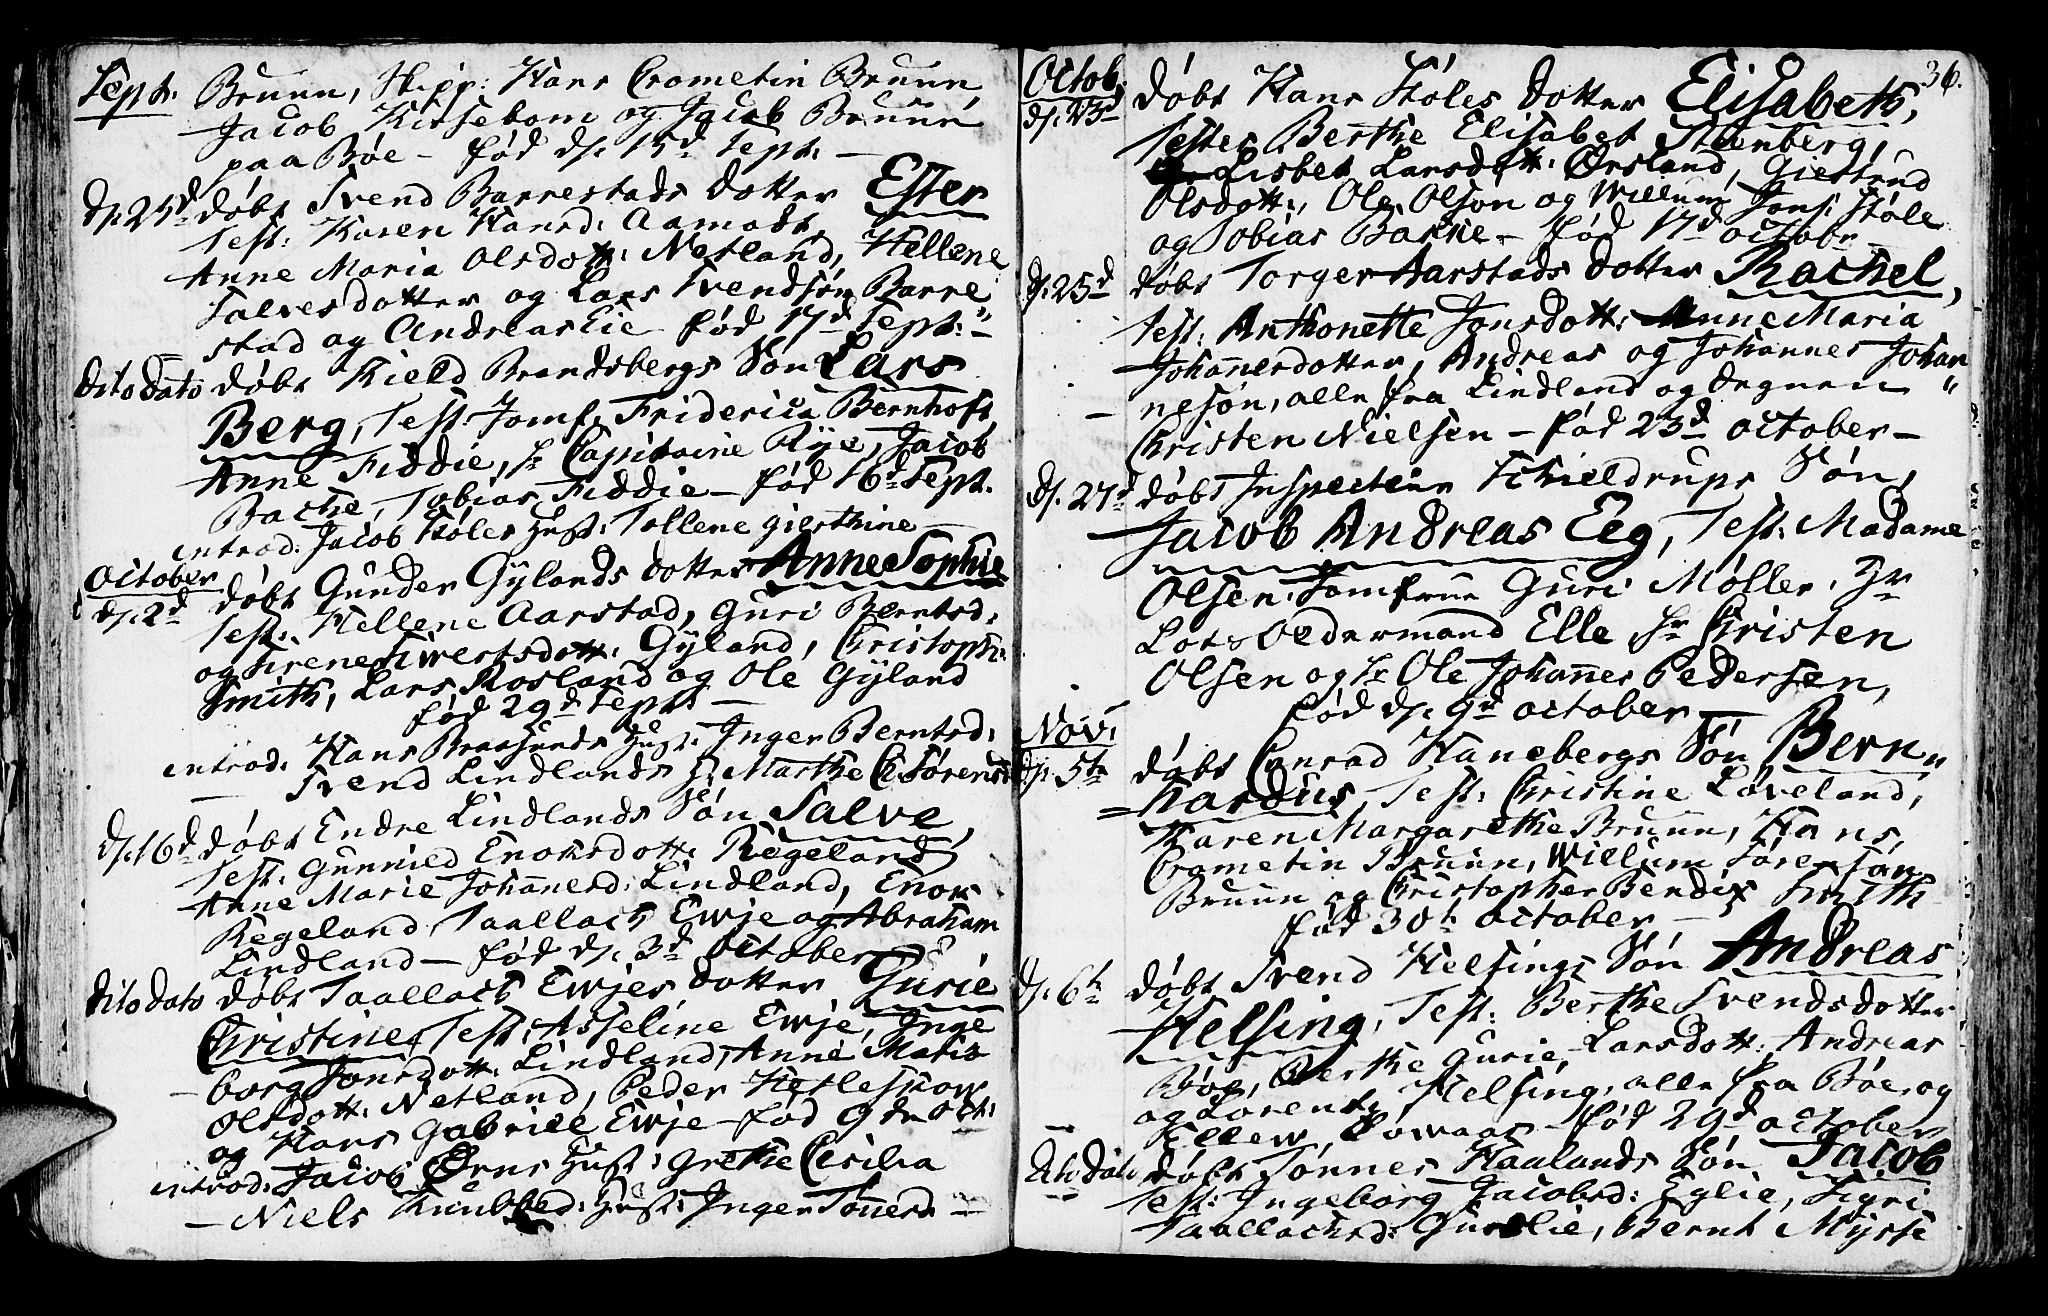 Sept. Bruun, Skipp: Hans Crometin Bruun,
Jacob Kirsebom og Jacob Bruun
paa Bøe – fød d. 15d Sept. –
d. 25d døbt Svend Barrestads dotter Ester
Test: Karen Hansd: Aamodt,
Anne Maria Olsdott: Netland, Hellene
Salvesdotter og Lars Svendsøn Barre„
stad og Andreas Eie fød 17d Sept: –
dito dato døbt Kield Brandsbergs Søn Lars
Berg, Test Jomf. Friderica Bernhoft,
Anne Fiddie, Hr Capitaine Rye, Jacob
Backe, Tobias Fiddie – fød 16d Sept.
introd: Jacob Støles Hust: Tollene Gierthine –
October
d. 2d døbt Gunder Gylands dotter Anne Sophie
Test: Hellene Aarstad, Guri Berntsd:
og Sirene Sivertsdott: Gyland, Christoph:
Smith, Lars Rosland og Ole Gyland
fød 29d Sept: –
introd: Hans Braasunds Hust: Inger Berntsd:
– Svend Lindlands H. Marthe C: Sørensd
d. 16d døbt Endre Lindlands Søn Salve,
Test: Gunnild Enoksdott: Regeland
Anne Marie Johannesd: Lindland, Enok
Regeland, Taallack Ewje og Abraham
Lindland – fød d. 3d October
dito dato døbt Taallack Ewjes dotter Gurie
Christine, Test: Asseline Ewje, Inge
borg Jonsdott: Lindland, Anne Maria
Olsdott: Netland, Peder Hetleskow
og Hans Gabriell Ewje – fød 9de Oct:
introd: Jacob Ørns Hust: Grethe Cicilia
– Niels Hust: Inger Tønnesd. –
36.
Octob.
d. 23d døbt Hans Støles dotter Elisabeth,
Testes Berthe Elisabet Steenberg,
Lisbet Larsdott: Ørsland, Giertrud
Olsdott:, Ole Olson og Willum Jons: Støle
og Tobias Backe – fød 17d octobr –
d. 25d døbt Torger Aarstads dotter Rachel,
Test: Anthonette Jonsdott: Anne Maria
Johannesdotter, Andreas og Johannes Johan„
– nesøn, alle fra Lindland og Degnen
Christen Nielsen – fød 23d october –
d. 27d døbt Inspecteur Schieldrups Søn,
Jacob Andreas Eeg, Test: Madame
Olsen, Jomfrue Guri Møller, Hr
Lots Oldermand Elle, Hr Christen
Olsen og Hr Ole Johannes Pedersen,
fød d. 9d october –
Nov:
d. 5te døbt Conrad Hanebergs Søn Bern„
hardus, Test: Christine Løveland,
Karen Margarethe Bruun, Hans
Crometin Bruun, Willum Sørensøn
Bruun og Christopher Bendix Smith
fød 30t October –
d. 6te døbt Svend Helsings Søn Andreas
Helsing, Test: Berthe Svendsdotter
Bøe, Berthe Gurie Larsdott: Andreas
og Lorentz Helsing, alle fra Bøe, og
– fød 29d october
dito dato døbt Tønnes Haalands Søn Jacob
Test: Ingeborg Jacobsd: Eglie, Sigri
Taallacksd: Guslie, Bernt Myrse